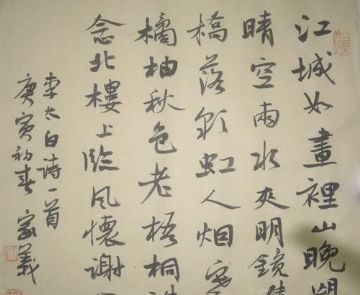 江城如畫裡山晚望
晴空兩水夾明鏡
橋落彩虹人烟寒
橘柚秋色老梧桐
念北樓上臨風懷謝
李太白诗一首
庚寅初春 家義